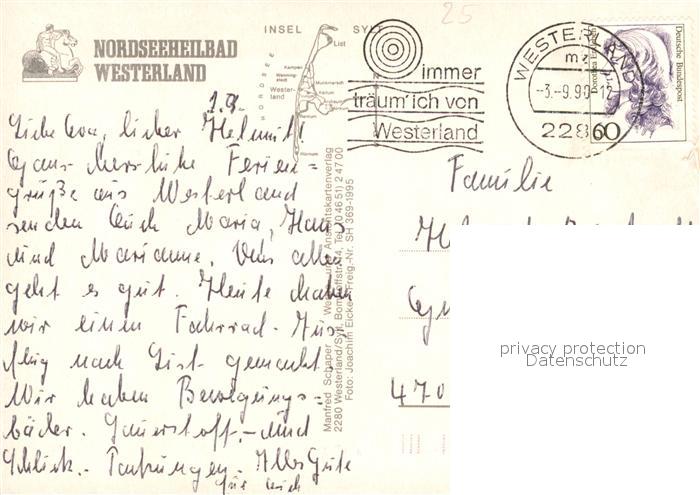 25
NORDSEEHEILBAD
WESTERLAND
INSEL SYLT
List
NORDSEE
Kampen
Westerland
immer
träum'ich von
Westerland
WESTERLAND
mz
-3.-9.90-12
2280
Deutsche Bundespost
60
1.9.
Liebe Eva, lieber Helmut!
Ganz herzliche Ferien-
grüße aus Westerland
senden Euch Maria, Hans
und Marianne. Uns allen
geht es gut. Heute haben
wir einen Fahrrad-Aus
flug nach List gemacht.
Wir haben Bewegungs=
bäder. Sauerstoff,- und
Schlick.- Packungen. Alles Gute
für euch
Manfred Schaper Werbe- und Ansichtskartenverlag
2280 Westerland/Sylt, Bomhoffstr. 4, Tel. (0 46 51) 2 47 00
Foto: Joachim Eicke Freig.-Nr. SH 369-1995
Familie
470
privacy protection
Datenschutz